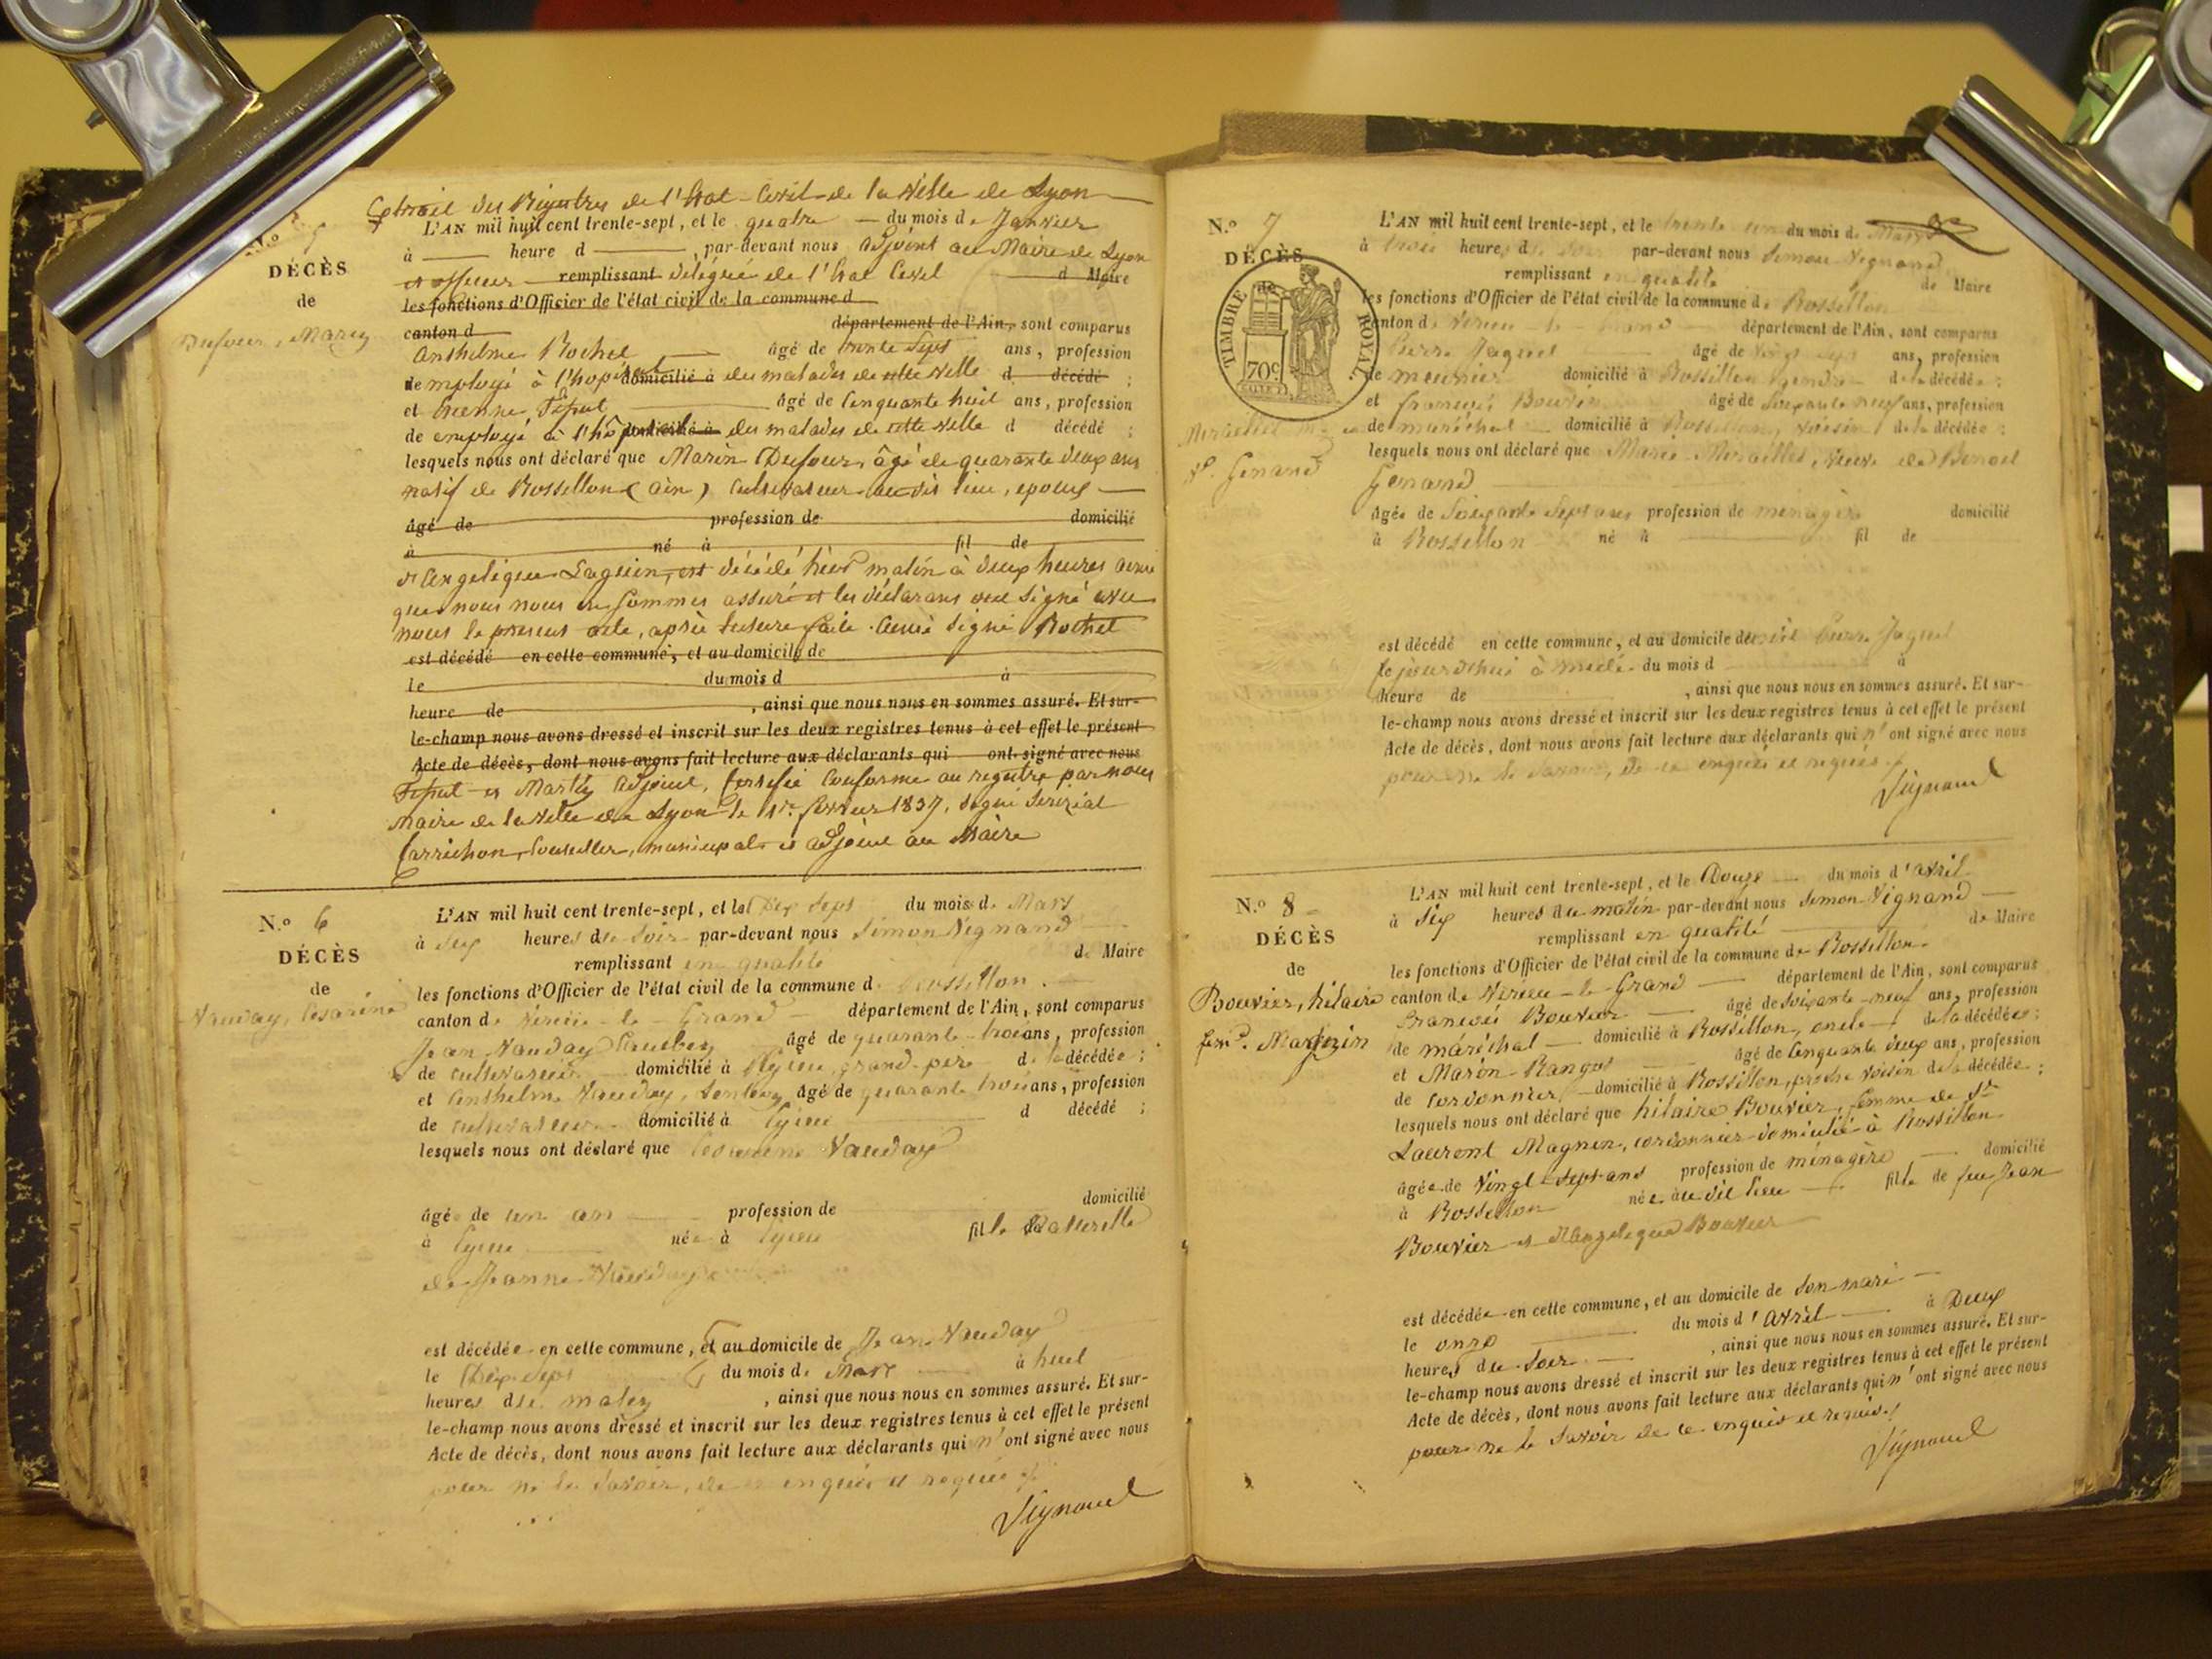 Extrait des Registres de l'Etat-Civil de la Ville de Lyon
L'AN mil huit cent trente-sept, et le quatre du mois de Janvier
à heure d , par-devant nous adjoint au Maire de Lyon
et officier remplissant délégué de l'Etat Civil d Maire
les fonctions d'Officier de l'état civil de la commune d
canton d département de l'Ain, sont comparus
Anthelme Rochet âgé de trente sept ans, profession
de employé à l'hopital domicilié à des malades de cette ville d décédé ;
et Etienne âgé de Cinquante huit ans, profession
de employé à l'hôpital domicilié à des malades de cette ville d décédé ;
lesquels nous ont déclaré que Marin Dufour, âgé de quarante deux ans
natif de Rossillon (Ain) Cultivateur au dit lieu, époux
âgé de profession de domicilié
à né à fil de
d'Angelique est décédé hier matin à deux heures ainsi
que nous nous en sommes assuré et les déclarans ont signé avec
nous le présent acte, après lecture faite. Ainsi signé Rochet
est décédé en cette commune, et au domicile de
le du mois d à
heure de , ainsi que nous nous en sommes assuré. Et sur-
le-champ nous avons dressé et inscrit sur les deux registres tenus à cet effet le présent
Acte de décès, dont nous avons fait lecture aux déclarants qui ont signé avec nous
et Adjoint, Certifié Conforme au registre par nous
Maire de la ville de Lyon le 1er. février 1837, Signé
Carrichon, Conseiller, municipal et adjoint au Maire
N.o 5
DÉCÈS
de
Dufour, Marin
N.o 6
DÉCÈS
de
Vauday, Césarine
L'AN mil huit cent trente-sept, et le Dix Sept du mois de Mars
à Six heures du Soir par-devant nous Simon Vignand
remplissant en qualité de Maire
les fonctions d'Officier de l'état civil de la commune d Rossillon
canton de Virieu-le-Grand département de l'Ain, sont comparus
Jean Vauday âgé de quarante trois ans, profession
de cultivateur domicilié à grand-père de la décédée ;
et Anthelme Vauday, âgé de quarante trois ans, profession
de cultivateur domicilié à d décédé ;
lesquels nous ont déclaré que Césarine Vauday
âgée de un an profession de domicilié
à née à fille naturelle
de Jeanne Vauday
est décédée en cette commune, et au domicile de Jean Vauday
le Dix Sept du mois de Mars à huit
heures du matin , ainsi que nous nous en sommes assuré. Et sur-
le-champ nous avons dressé et inscrit sur les deux registres tenus à cet effet le présent
Acte de décès, dont nous avons fait lecture aux déclarants qui n'ont signé avec nous
pour ne le savoir, de ce enquis et requis
Vignand
N.o 7
DÉCÈS
de
TIMBRE ROYAL.
70c
Vve. Genand
L'AN mil huit cent trente-sept, et le trente un du mois de Mars
à trois heures du soir par-devant nous Simon Vignand
remplissant en qualité de Maire
les fonctions d'Officier de l'état civil de la commune de Rossillon
canton de Virieu-le-Grand département de l'Ain, sont comparus
Pierre Jaquet âgé de Vingt Sept ans, profession
de meunier domicilié à Rossillon Gendre de la décédée ;
et françois Bouvier âgé de Soixante neuf ans, profession
de maréchal domicilié à Rossillon, voisin de la décédée ;
lesquels nous ont déclaré que Marie Miraillet, veuve de Benoit
Genand
âgée de Soixante Sept ans profession de ménagère domicilié
à Rossillon né à fil de
est décédé en cette commune, et au domicile dudit Pierre Jaquet
le jourd'hui à midi du mois d à
heure de , ainsi que nous nous en sommes assuré. Et sur-
le-champ nous avons dressé et inscrit sur les deux registres tenus à cet effet le présent
Acte de décès, dont nous avons fait lecture aux déclarants qui n'ont signé avec nous
pour ne le savoir, de ce enquis et requis
Vignand
N.o 8
DÉCÈS
de
Bouvier, hilaire
L'AN mil huit cent trente-sept, et le Douze du mois d'avril
à Six heures du matin par-devant nous Simon Vignand
remplissant en qualité de Maire
les fonctions d'Officier de l'état civil de la commune de Rossillon
canton de Virieu-le-Grand département de l'Ain, sont comparus
françois Bouvier âgé de soixante-neuf ans, profession
de maréchal domicilié à Rossillon, oncle de la décédée ;
et Marin Rangot âgé de Cinquante deux ans, profession
de cordonnier domicilié à Rossillon, proche voisin de la décédée ;
lesquels nous ont déclaré que hilaire Bouvier, femme de Sr.
Laurent Magnin, cordonnier domicilié à Rossillon
âgée de Vingt-Sept ans profession de ménagère domicilié
à Rossillon née au dit lieu fille de feu Jean
Bouvier et d'Angelique Bouvier
est décédée en cette commune, et au domicile de Son mari
le onze du mois d'avril à Deux
heures du Soir , ainsi que nous nous en sommes assuré. Et sur-
le-champ nous avons dressé et inscrit sur les deux registres tenus à cet effet le présent
Acte de décès, dont nous avons fait lecture aux déclarants qui n'ont signé avec nous
pour ne le savoir de ce enquis et requis
Vignand